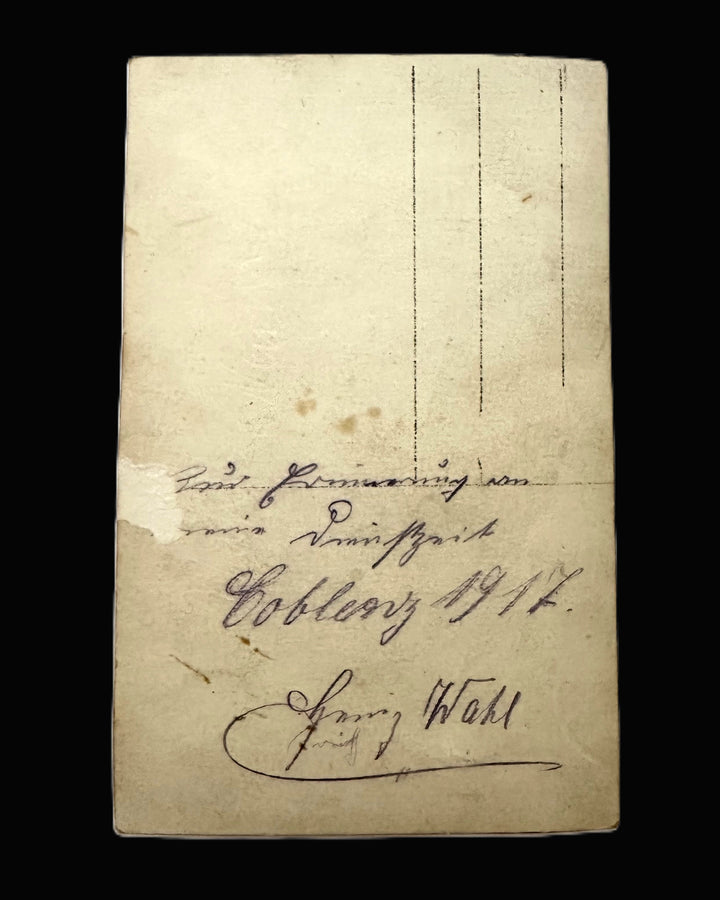 Zur Erinnerung an
meine Dienstzeit
Coblenz 1917.
Heinz Wahl